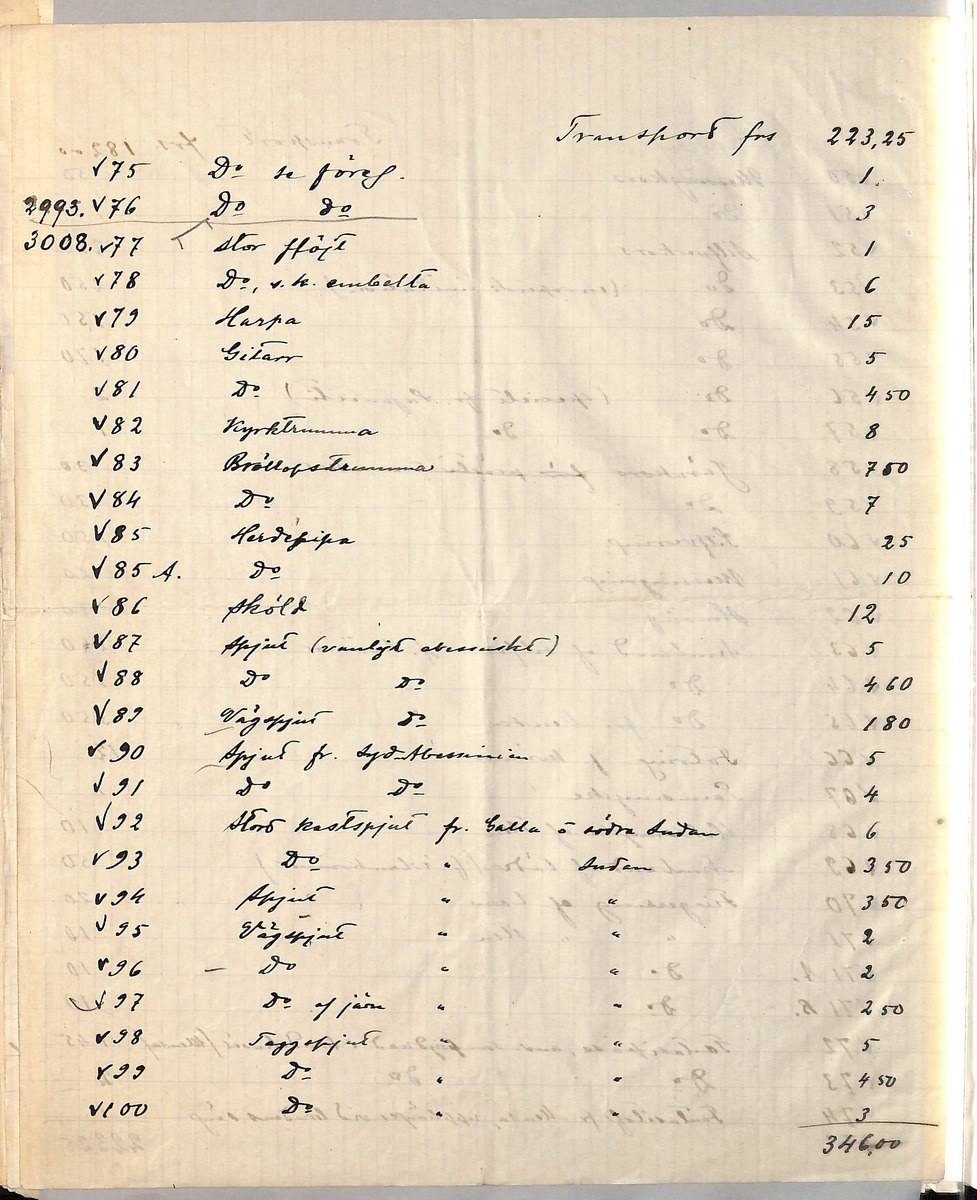 Transport frs 223,25
√75 Do se föreg. 1.
2993. √76 Do do 3
3008. √77 Stor flöjt 1
√78 Do, s.k. embelta 6
√79 Harpa 15
√80 Gitarr 5
√81 Do 4 50
√82 Kyrktrumma 8
√83 Bröllopstrumma 7 50
√84 Do 7
√85 Herdepipa 25
√85 A. Do 10
√86 Sköld 12
√87 Spjut (vanligt abessinskt) 5
√88 Do Do 4 60
√89 Vägspjut do 1 80
√90 Spjut fr. Syd-Abessinien 5
√91 Do Do 4
√92 Stort kastspjut fr. Galla o södra Sudan 6
√93 Do " Sudan 3 50
√94 Spjut " " 3 50
√95 Vägspjut " " 2
√96 – Do " " 2
√97 Do af järn " " 2 50
√98 Taggspjut " " 5
√99 Do " " 4 50
√100 Do " " 3
346,00